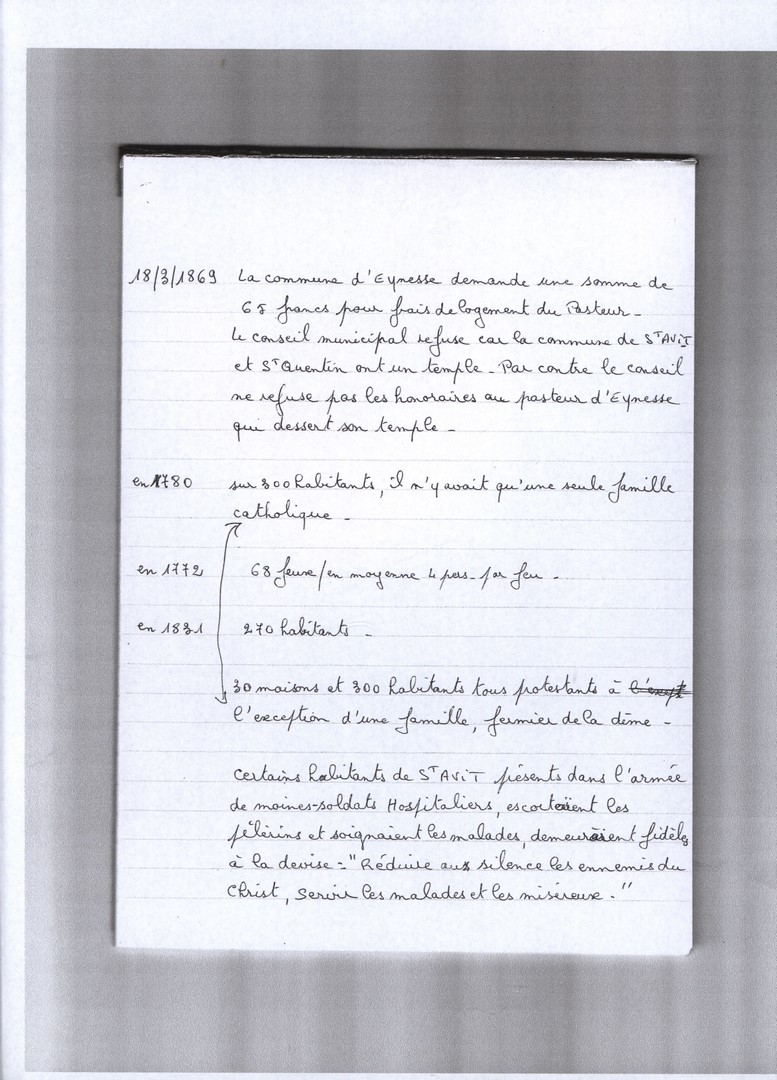 18/3/1869 La commune d'Eynesse demande une somme de
65 francs pour frais de logement du Pasteur -
Le conseil municipal refuse car la commune de ST AVIT
et ST Quentin ont un temple - Par contre le conseil
ne refuse pas les honoraires au pasteur d'Eynesse
qui dessert son temple -
en 1780 sur 300 habitants, il n'y avait qu'une seule famille
catholique -
en 1772 68 feux/en moyenne 4 pers. par feu -
en 1831 270 habitants -
30 maisons et 300 habitants tous protestants à l'except
l'exception d'une famille, fermier de la dîme -
Certains habitants de ST AViT présents dans l'armée
de moines-soldats Hospitaliers, escortaient les
pélèrins et soignaient les malades, demeuraient fidèles
à la devise : "Réduire aux silence les ennemis du
Christ, servir les malades et les miséreux."